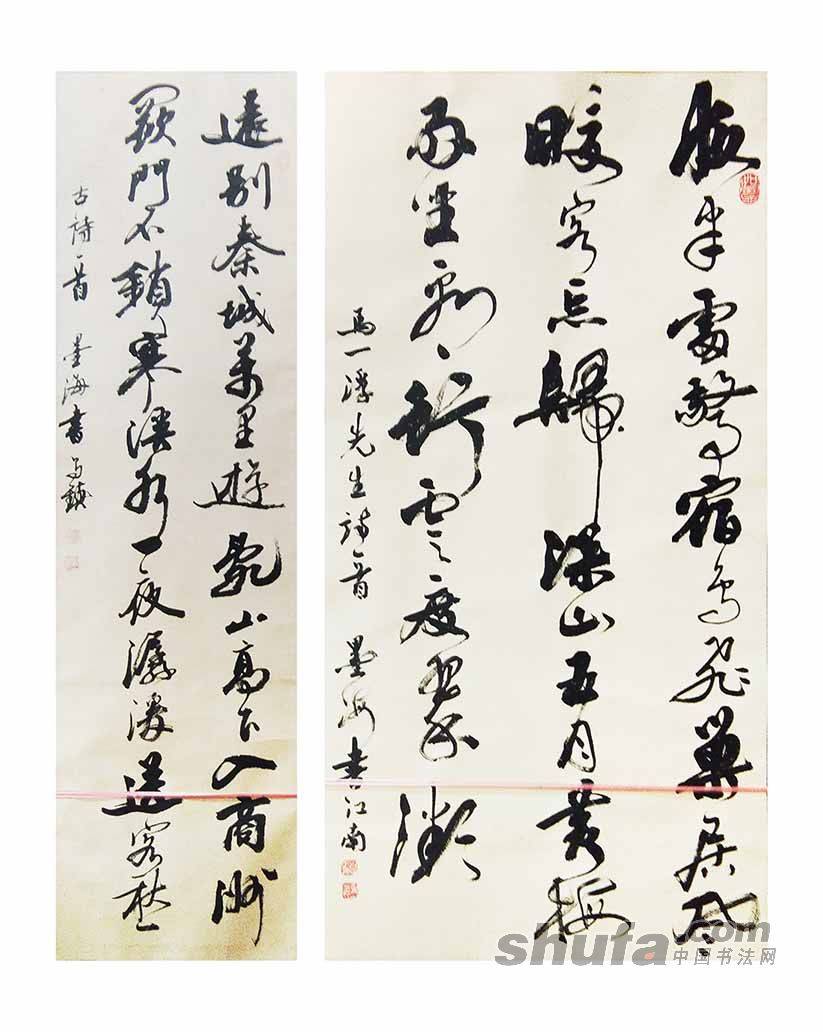 夜半雷驚宿鳥飛巢居風
暖客忘歸深山五月黃梅
雨坐行雲度翠微
馬一浮先生詩一首 墨海書江南
遠別秦城萬里遊亂山高下入商州
關門不鎖寒溪水一夜潺湲送客愁
古詩一首 墨海書
shufa.com
中国书法网